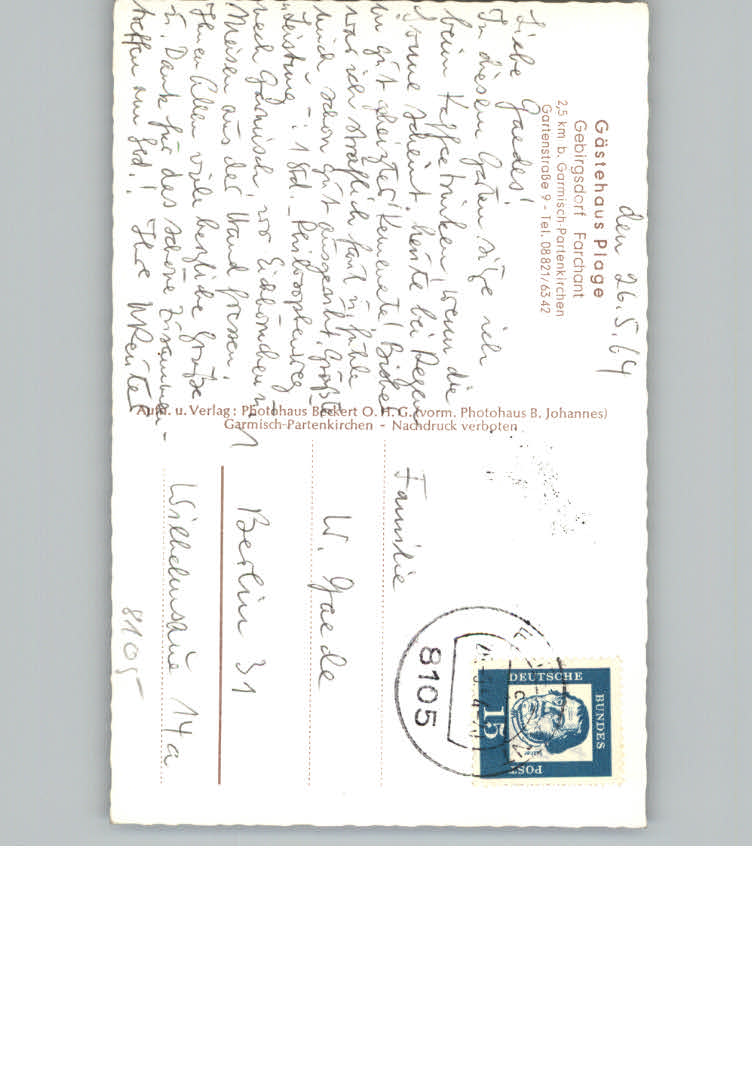 Gästehaus Plage
Gebirgsdorf Farchant
2,5 km b. Garmisch-Partenkirchen
Gartenstraße 9 - Tel. 08821/6342
den 26.5.64
Liebe Gaedes!
In diesem Garten sitze ich
beim Kaffeetrinken, wenn die
Sonne scheint, heute bei Regen
in gut geheizter Kemenate! Bisher
war ich sträflich faul u. fühle
mich schon gut ausgeruht. Größte
"Leistung": 1 Std. Philosophenweg
nach Garmisch, wo Eichhörnchen u.
Meisen aus der Hand fressen.
Ihnen Allen viele herzliche Grüße
u. Dank für das schöne Zusammen-
treffen am
Ihre
Aufn. u. Verlag: Photohaus Beckert O. H. G. (vorm. Photohaus B. Johannes)
Garmisch-Partenkirchen - Nachdruck verboten
Familie
W. Gaede
1 Berlin 31
Wilhelmsaue 14a
8105
8105
DEUTSCHE
BUNDES
POST
15